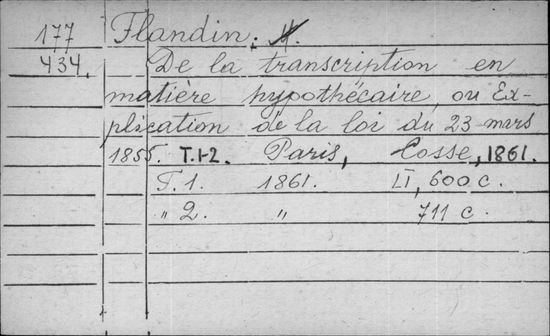 177 Flandin.
434. De la transcription en
matière hypothécaire, ou Ex-
plication de la loi du 23 mars
1855. T.1-2. Paris, Cosse, 1861.
T. 1. 1861. LT, 600 c.
„ 2. „ 711 c.